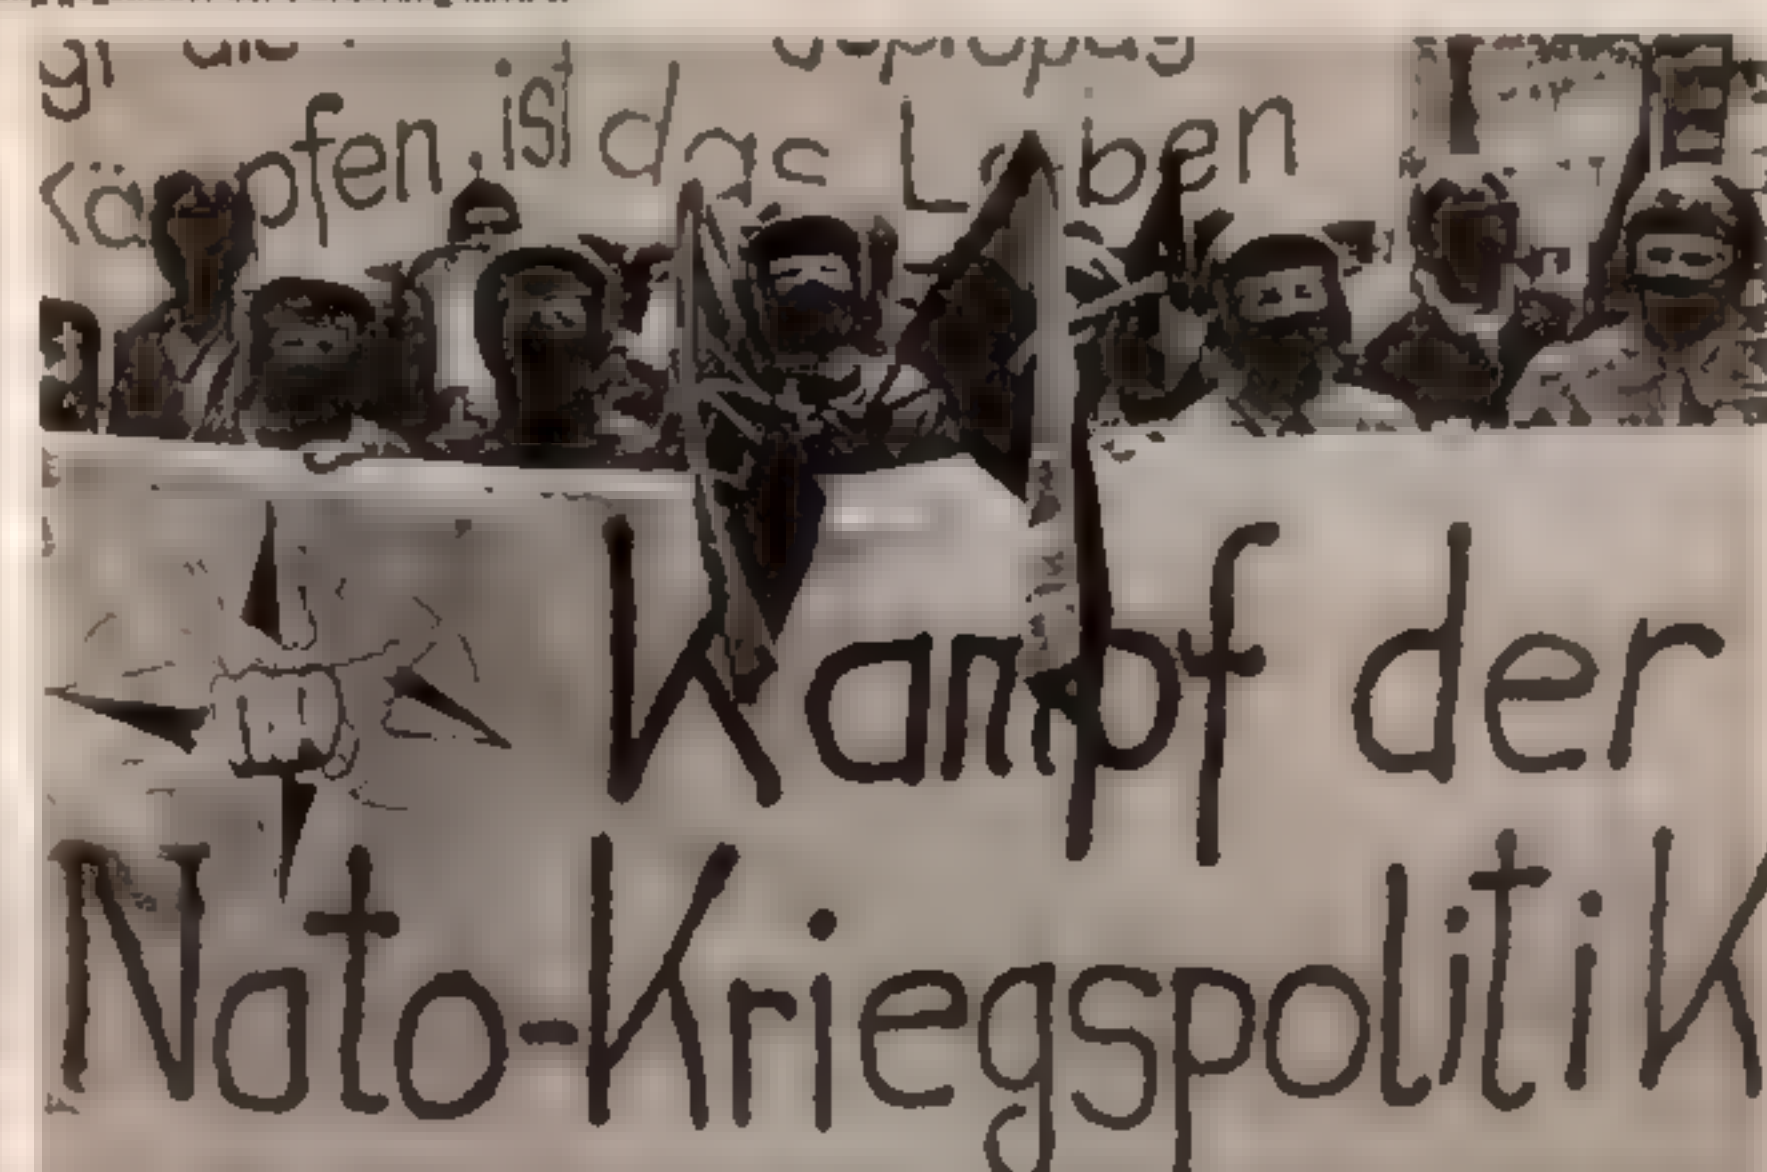 Kämpfen ist das Leben
Kampf der
Nato-Kriegspolitik